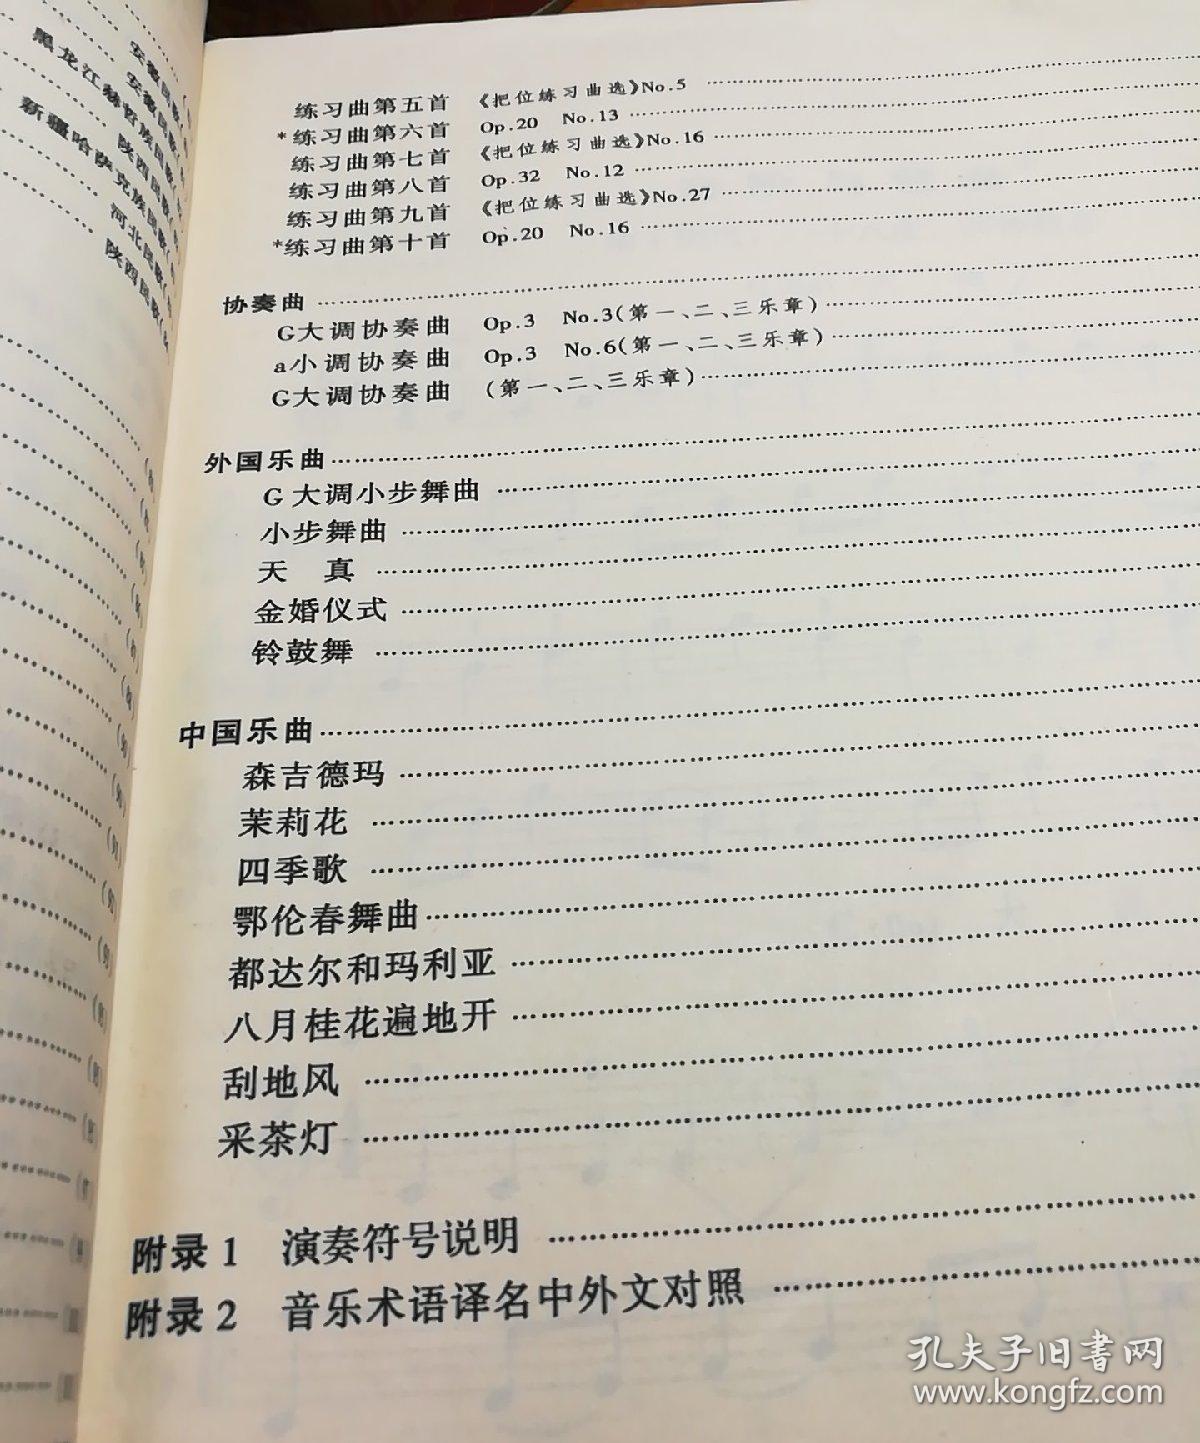 安徽民歌
安徽民歌
黑龙江赫哲族民歌
陕西民歌
新疆哈萨克族民歌
河北民歌
陕西民歌
练习曲第五首 《把位练习曲选》No.5
*练习曲第六首 Op.20 No.13
练习曲第七首 《把位练习曲选》No.16
练习曲第八首 Op.32 No.12
练习曲第九首 《把位练习曲选》No.27
*练习曲第十首 Op.20 No.16
协奏曲
G大调协奏曲 Op.3 No.3(第一、二、三乐章)
a小调协奏曲 Op.3 No.6(第一、二、三乐章)
G大调协奏曲 (第一、二、三乐章)
外国乐曲
G大调小步舞曲
小步舞曲
天 真
金婚仪式
铃鼓舞
中国乐曲
森吉德玛
茉莉花
四季歌
鄂伦春舞曲
都达尔和玛利亚
八月桂花遍地开
刮地风
采茶灯
附录1 演奏符号说明
附录2 音乐术语译名中外文对照
孔夫子旧书网
www.kongfz.com